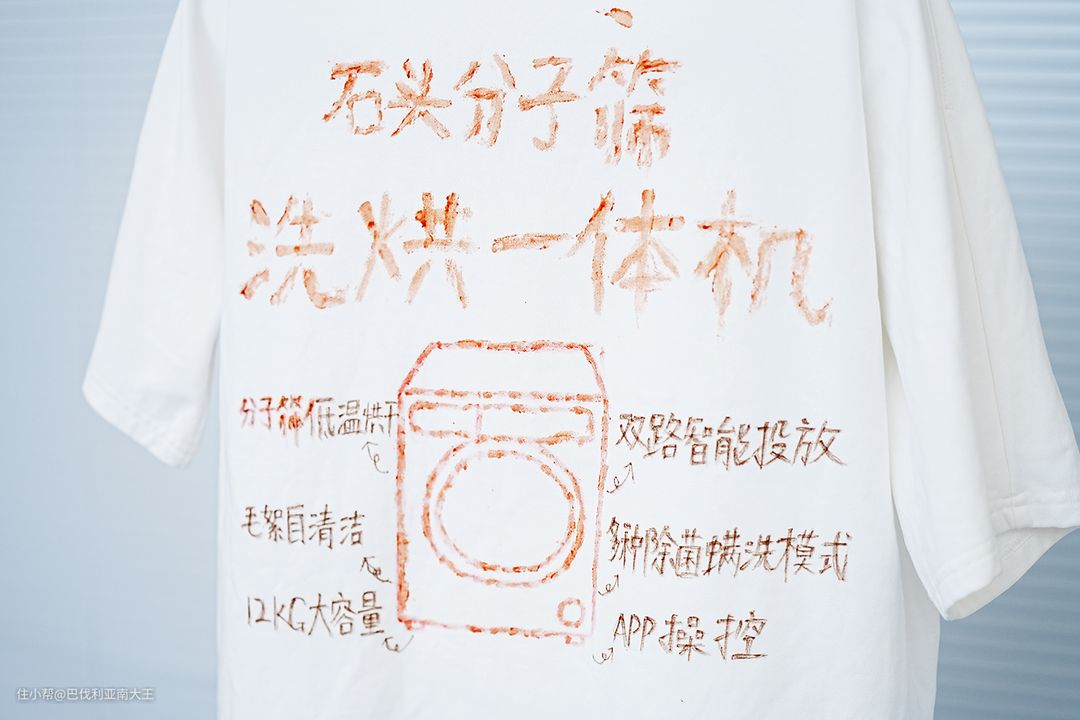 石头分子筛
洗烘一体机
分子筛低温烘干
双路智能投放
毛絮自清洁
多种除菌螨洗模式
12KG大容量
APP操控
住小帮@巴伐利亚南大王